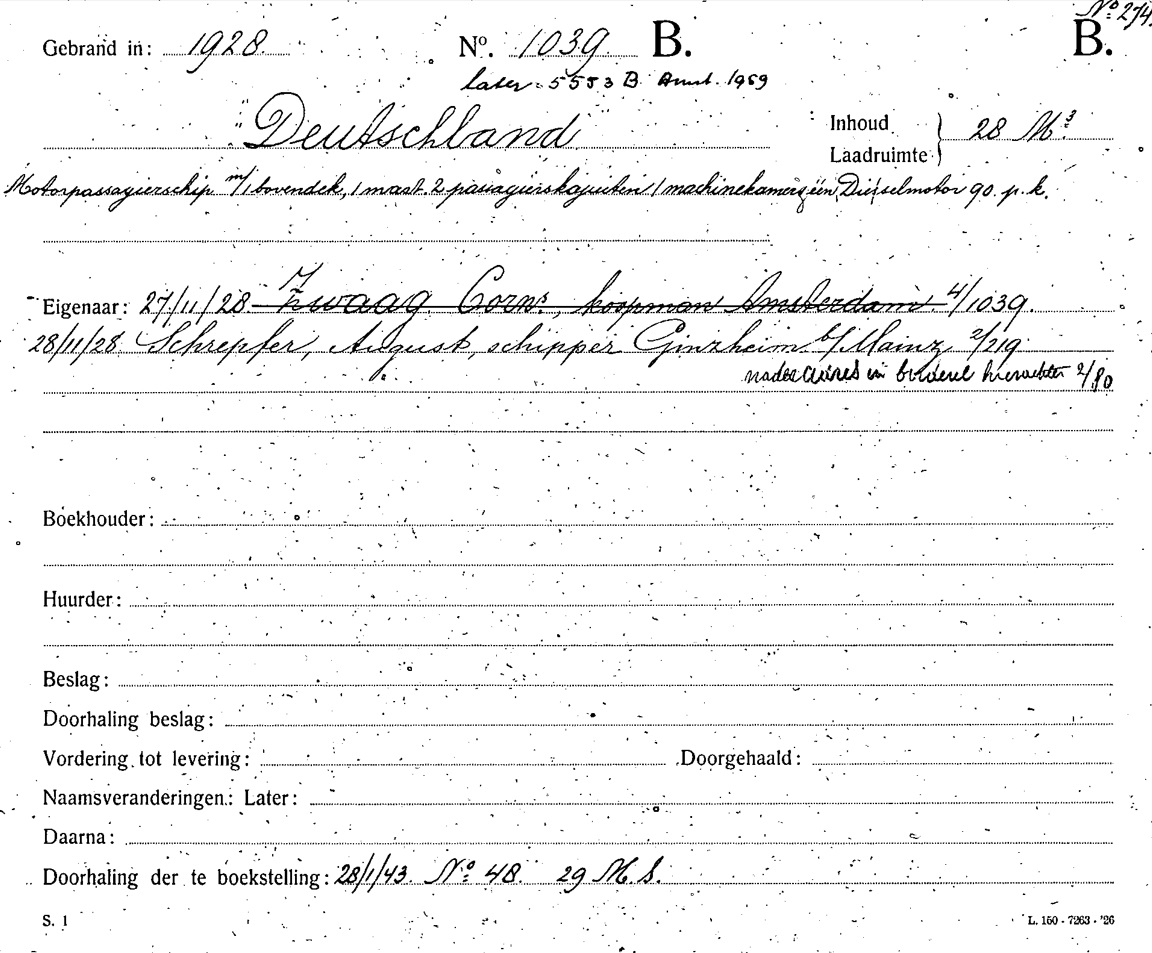 Nº 274
Gebrand in: 1928 Nº. 1039 B. B.
later 5553 B Amst. 1969
"Deutschland" Inhoud Laadruimte } 28 M³
Motorpassagierschip m/1 bovendek, 1 mast. 2 passagierskajuiten 1 machinekamer, één Dieselmotor 90. p.k.
Eigenaar: 27/11/28 Zwaag Corns, koopman Amsterdam 4/1039.
28/11/28 Schrepfer, August, schipper Ginzheim b/Mainz 2/219
nader in 2/80
Boekhouder:
Huurder:
Beslag:
Doorhaling beslag:
Vordering tot levering: Doorgehaald:
Naamsveranderingen: Later:
Daarna:
Doorhaling der te boekstelling: 28/1/43. Nº 48. 29 M.S.
S. 1 L. 150 - 7263 - '26